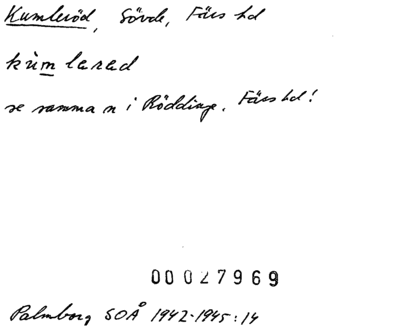 Kumleröd, Sövde, Färs hd
kùmlarad
se samma n i Röddinge, Färs hd!
00027969
Palmborg SOÅ 1942-1945:14